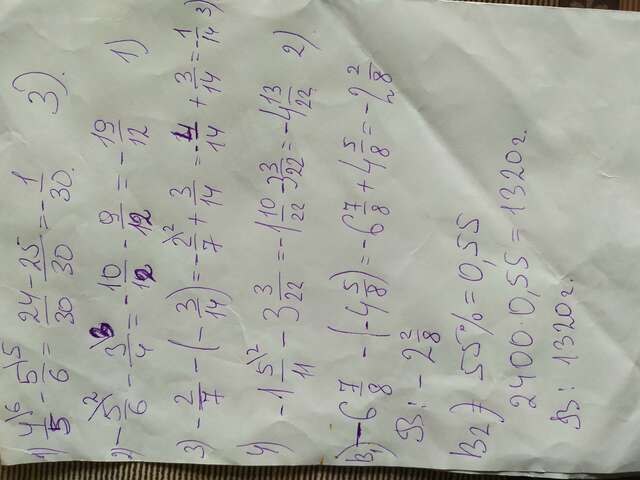 1) 4\6/5 - 5\5/6 = 24/30 - 25/30 = -1/30. 3).
2) -5\2/6 - 3\3/4 = -10/12 - 9/12 = -19/12 1)
3) -2/7 - (-3/14) = -2\2/7 + 3/14 = -4/14 + 3/14 = -1/14 3)
4) -1 5\2/11 - 3 3/22 = -1 10/22 - 3 3/22 = -4 13/22 2)
B1) -6 7/8 - (-4 5/8) = -6 7/8 + 4 5/8 = -2 2/8
В: -2 2/8
B2) 55% = 0,55
2400·0,55 = 1320г.
В: 1320г.